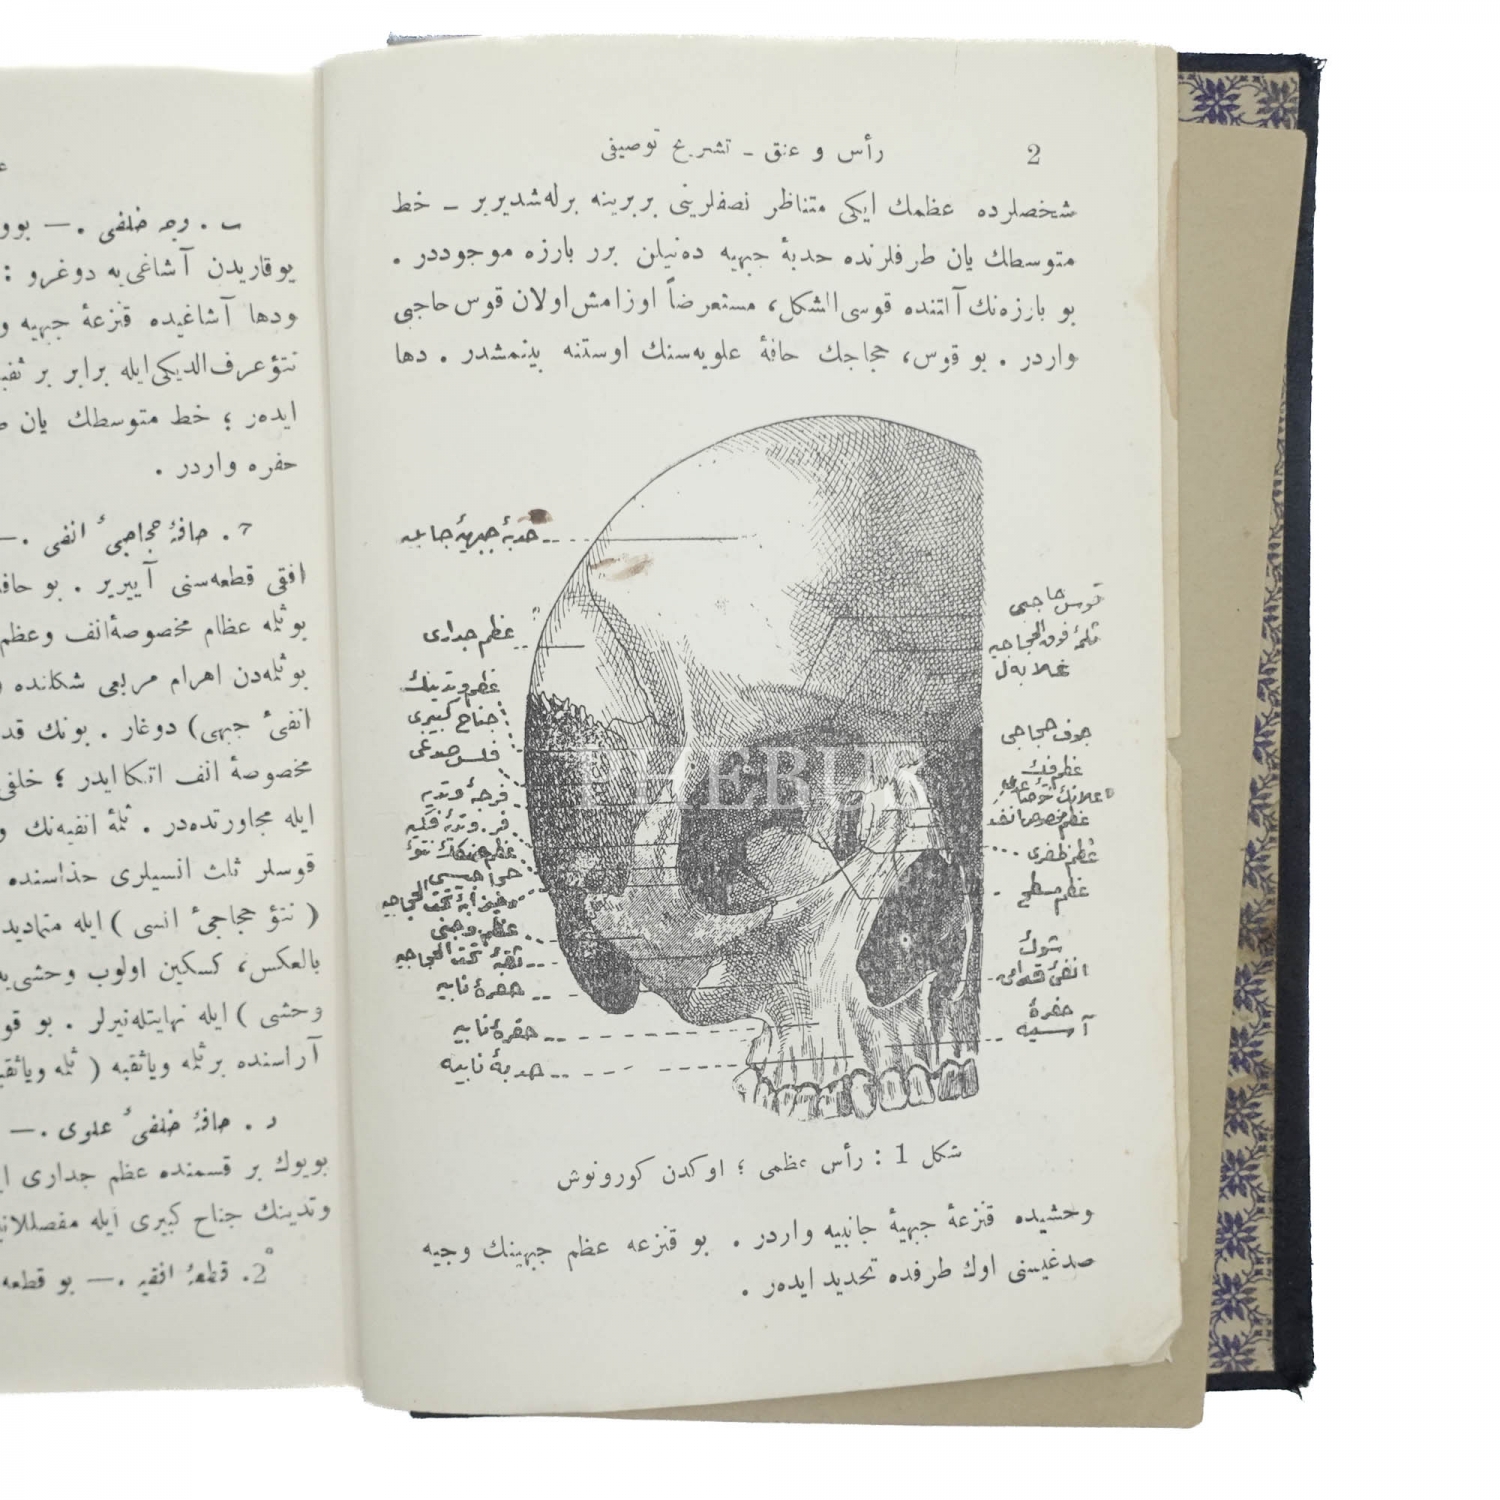 2
رأس و عنق ـ تشریح توصیفی
شخصلرده عظمك ایكی متناظر نصفلرینی بربرینه برله‌شدیریر ـ خط
متوسطك یان طرفلرنده حدبهٔ جبهیه ده‌نیلن برر بارزه موجوددر .
بو بارزه‌نك آلتنده قوسی‌الشكل، مستعرضاً اوزامش‌اولان قوس‌حاجبی
واردر . بو قوس، حجاجك حافهٔ علویه‌سنك اوستنه بینمشدر . دها
حدبهٔ جبهیهٔ جانبیه
عظم جداری
عظم وتدینك
جناح كبیری
فلس صدغی
فرجهٔ وتدیه
فر. وتدیهٔ فكیه
عظم وجنی
ثقبهٔ تحت الحجاجیه
حفرهٔ نابیه
حفرهٔ نابیه
حدبهٔ نابیه
قوس حاجبی
ثلمهٔ فوق الحجاجیه
جوف حجاجی
عظم فك
عظم مخصوص انف
عظم ظفری
عظم مسطح
شوك
انفیٔ قدامی
حفرهٔ
آسیه
شكل 1 : رأس عظمی ؛ اوكدن كورونوش
وحشیده قنزعهٔ جبهیهٔ جانبیه واردر . بو قنزعه عظم جبهینك وجیه
صدغیسنی اوك طرفده تحدید ایده‌ر .
ب . وجه خلفی . — بوو
یوقاریدن آشاغی‌یه دوغرو :
ودها آشاغیده قنزعهٔ جبهیه و
نتؤعرف‌الدیكی‌ایله برابر بر ثقبه
ایده‌ر ؛ خط متوسطك یان
حفره واردر .
ج . حافهٔ حجاجیٔ انفی . —
افقی قطعه‌سنی آییریر . بو حافه
بوثلمه عظام مخصوصهٔ‌انف وعظم
بوثلمه‌دن اهرام مربعی شكلنده
انفیٔ جبهی) دوغار . بونك قد
مخصوصهٔ انف اتكاایدر ؛ خلفی
ایله مجاورتده‌در . ثلمهٔ انفیه‌نك و
قوسلر ثلث انسیلری حذاسنده
( نتؤ حجاجیٔ انسی ) ایله متمادیدر
بالعكس، كسكین اولوب وحشی‌یه
وحشی ) ایله نهایتله‌نیرلر . بو قو
آراسنده بر ثلمه ویاثقبه ( ثلمه ویاثقبه
د . حافهٔ خلفیٔ علوی . —
بویوك بر قسمنده عظم جداری
وتدینك جناح كبیری ایله مفصللانیر
2°. قطعهٔ افقیه . — بو قطعه
PHEBUS